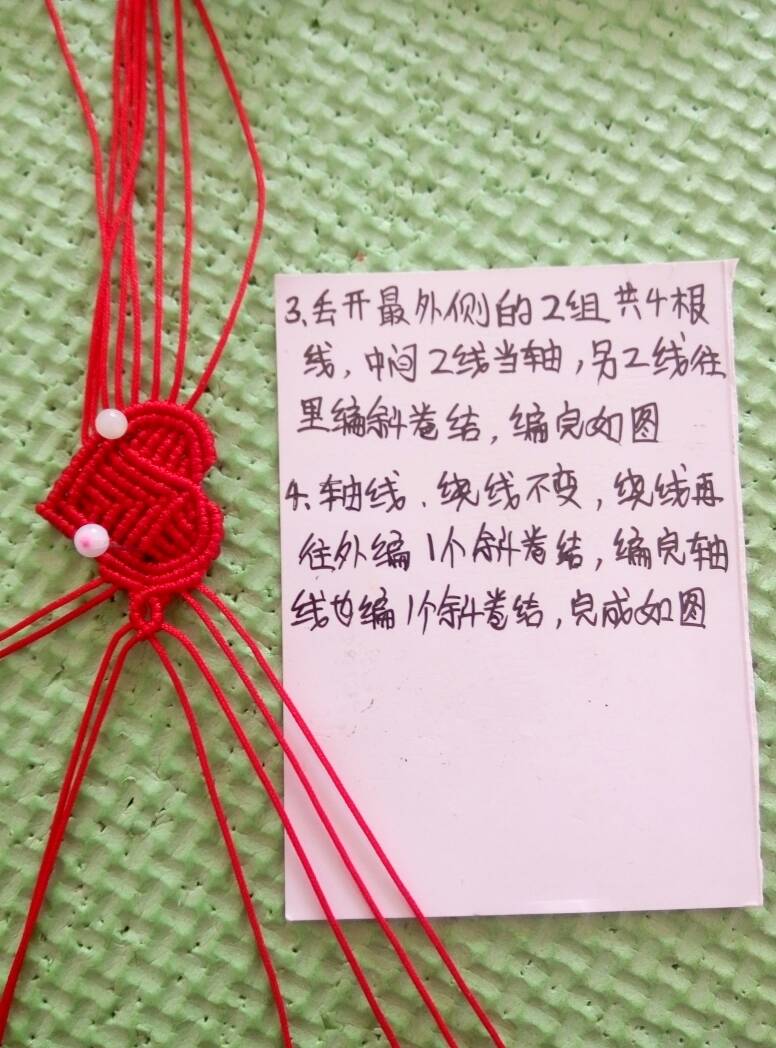 3、丢开最外侧的2组共4根
线，中间2线当轴，另2线往
里编斜卷结，编完如图
4、轴线、绕线不变，绕线再
往外编1个斜卷结，编完轴
线也编1个斜卷结，完成如图